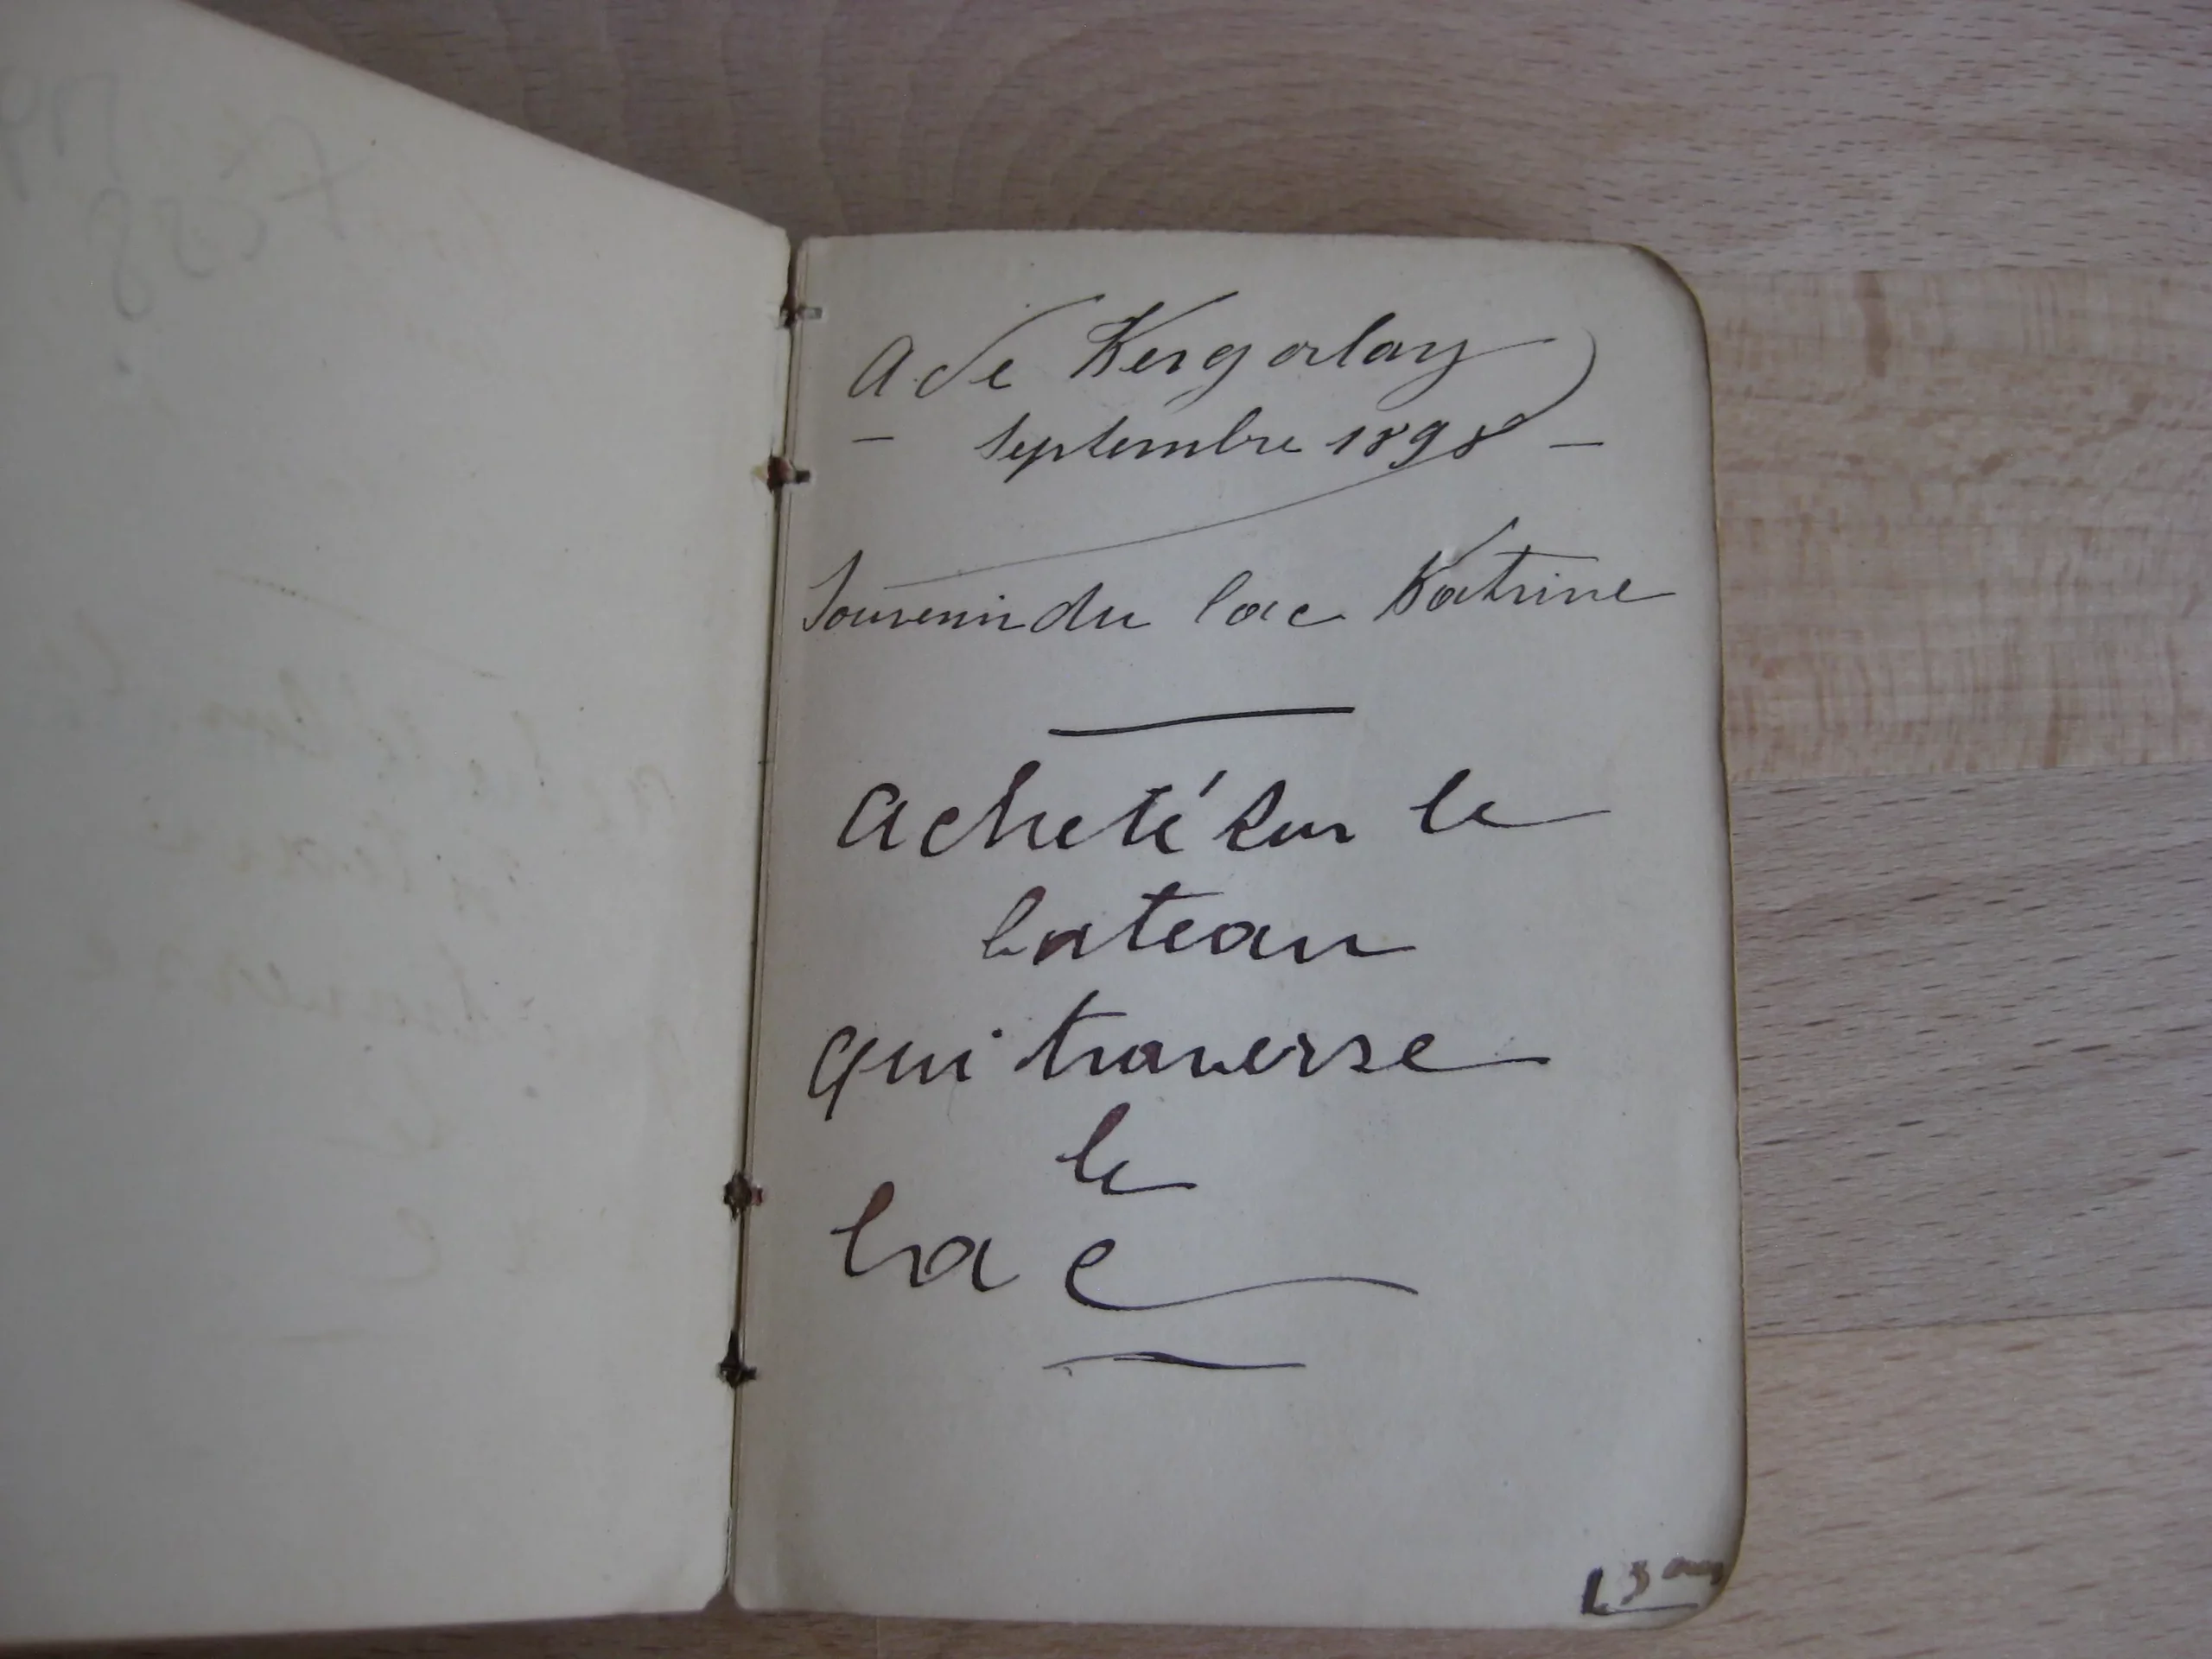 A de Kergorlay
– Septembre 1898 –
Souvenir du lac Katrine
Acheté sur le
bateau
qui traverse
le
lac